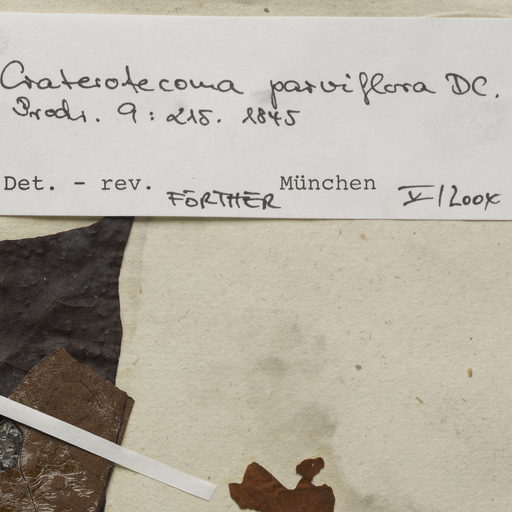 Craterotecoma parviflora DC.
Prodr. 9: 215. 1845
Det. - rev. FÖRTHER München V/200x